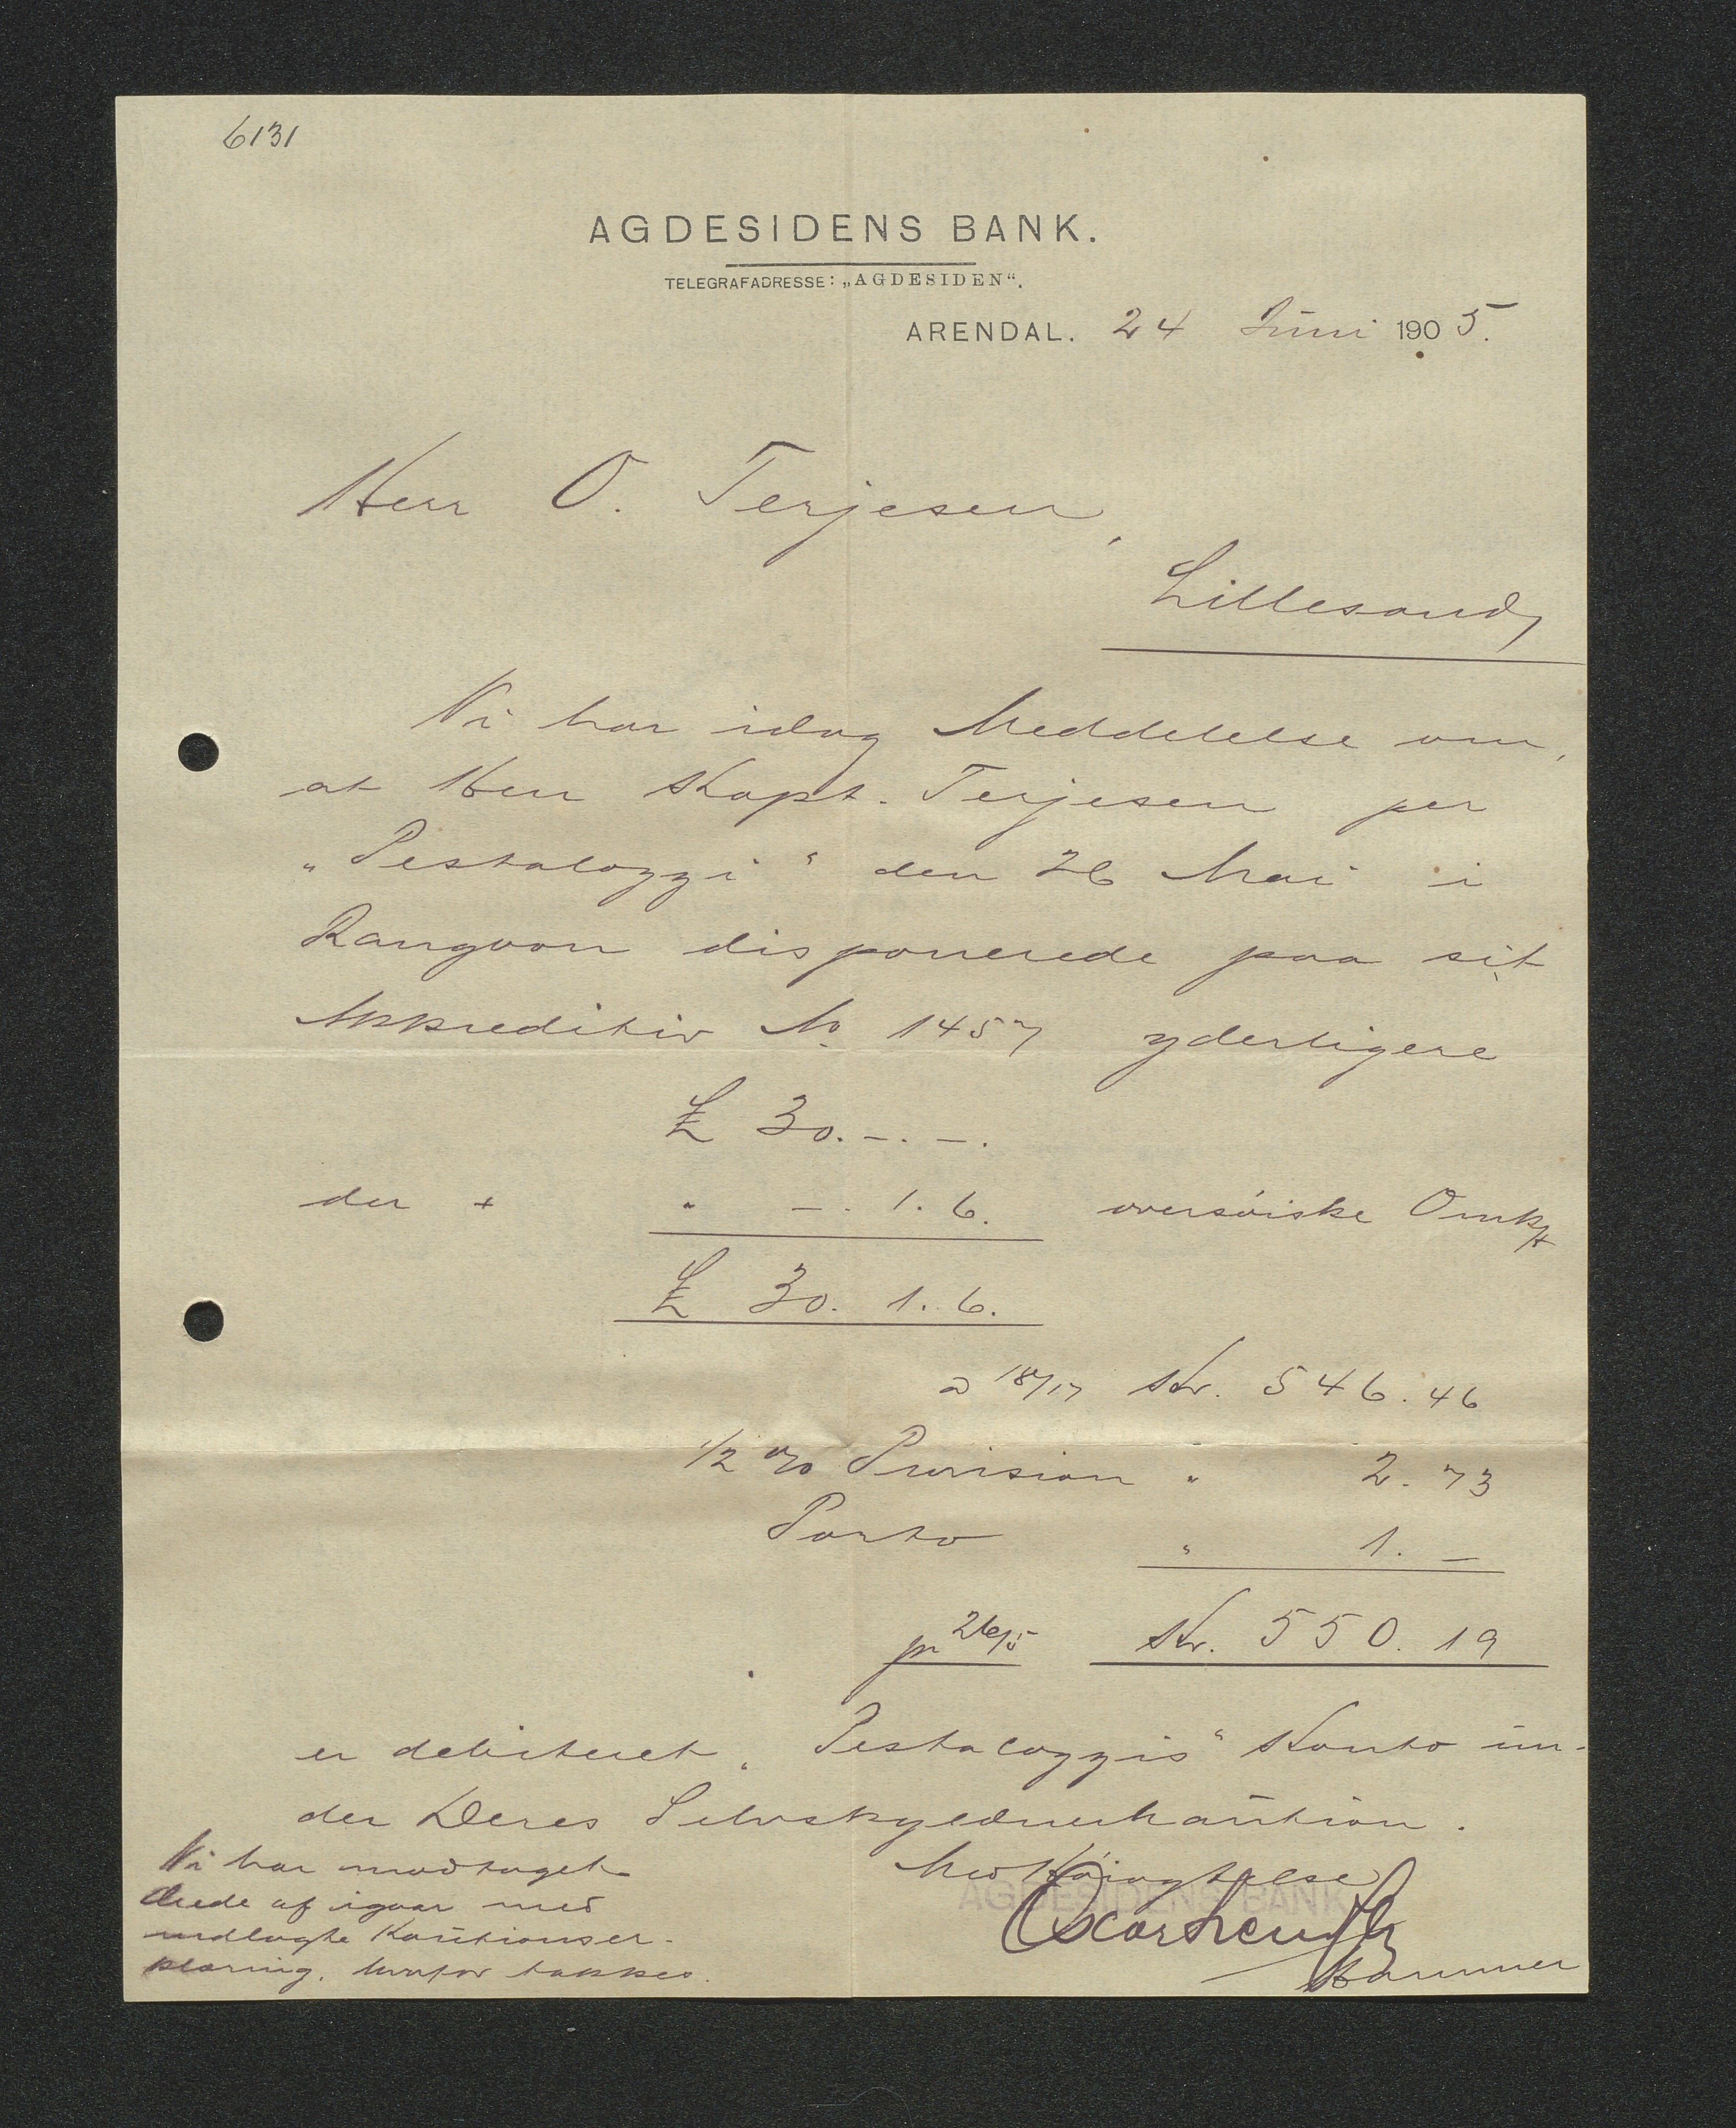 6131
AGDESIDENS BANK.
TELEGRAFADRESSE: „AGDESIDEN“.
ARENDAL. 24 Juni 1905.
Herr O. Terjesen,
Lillesand,
Vi har idag Meddelelse om,
at Herr Kapt. Terjesen per
„Pestalozzi“ den 26 Mai i
Rangoon disponerede paa sit
Akkreditiv No 1457 yderligere
£ 30.-.-.
der + " -. 1. 6. oversøiske Omk
£ 30. 1. 6.
a 18/17 Kr. 546.46
1/2 % Provision " 2.73
Porto " 1.-
pr 26/5 Kr. 550.19
er debiteret „Pestalozzis“ Konto un-
der Deres Selvskyldnerkaution.
Med Høiagtelse
AGDESIDENS BANK
Vi har modtaget
Deres af igaar med
indlagte Kautionser-
klæring, hvorfor takkes.